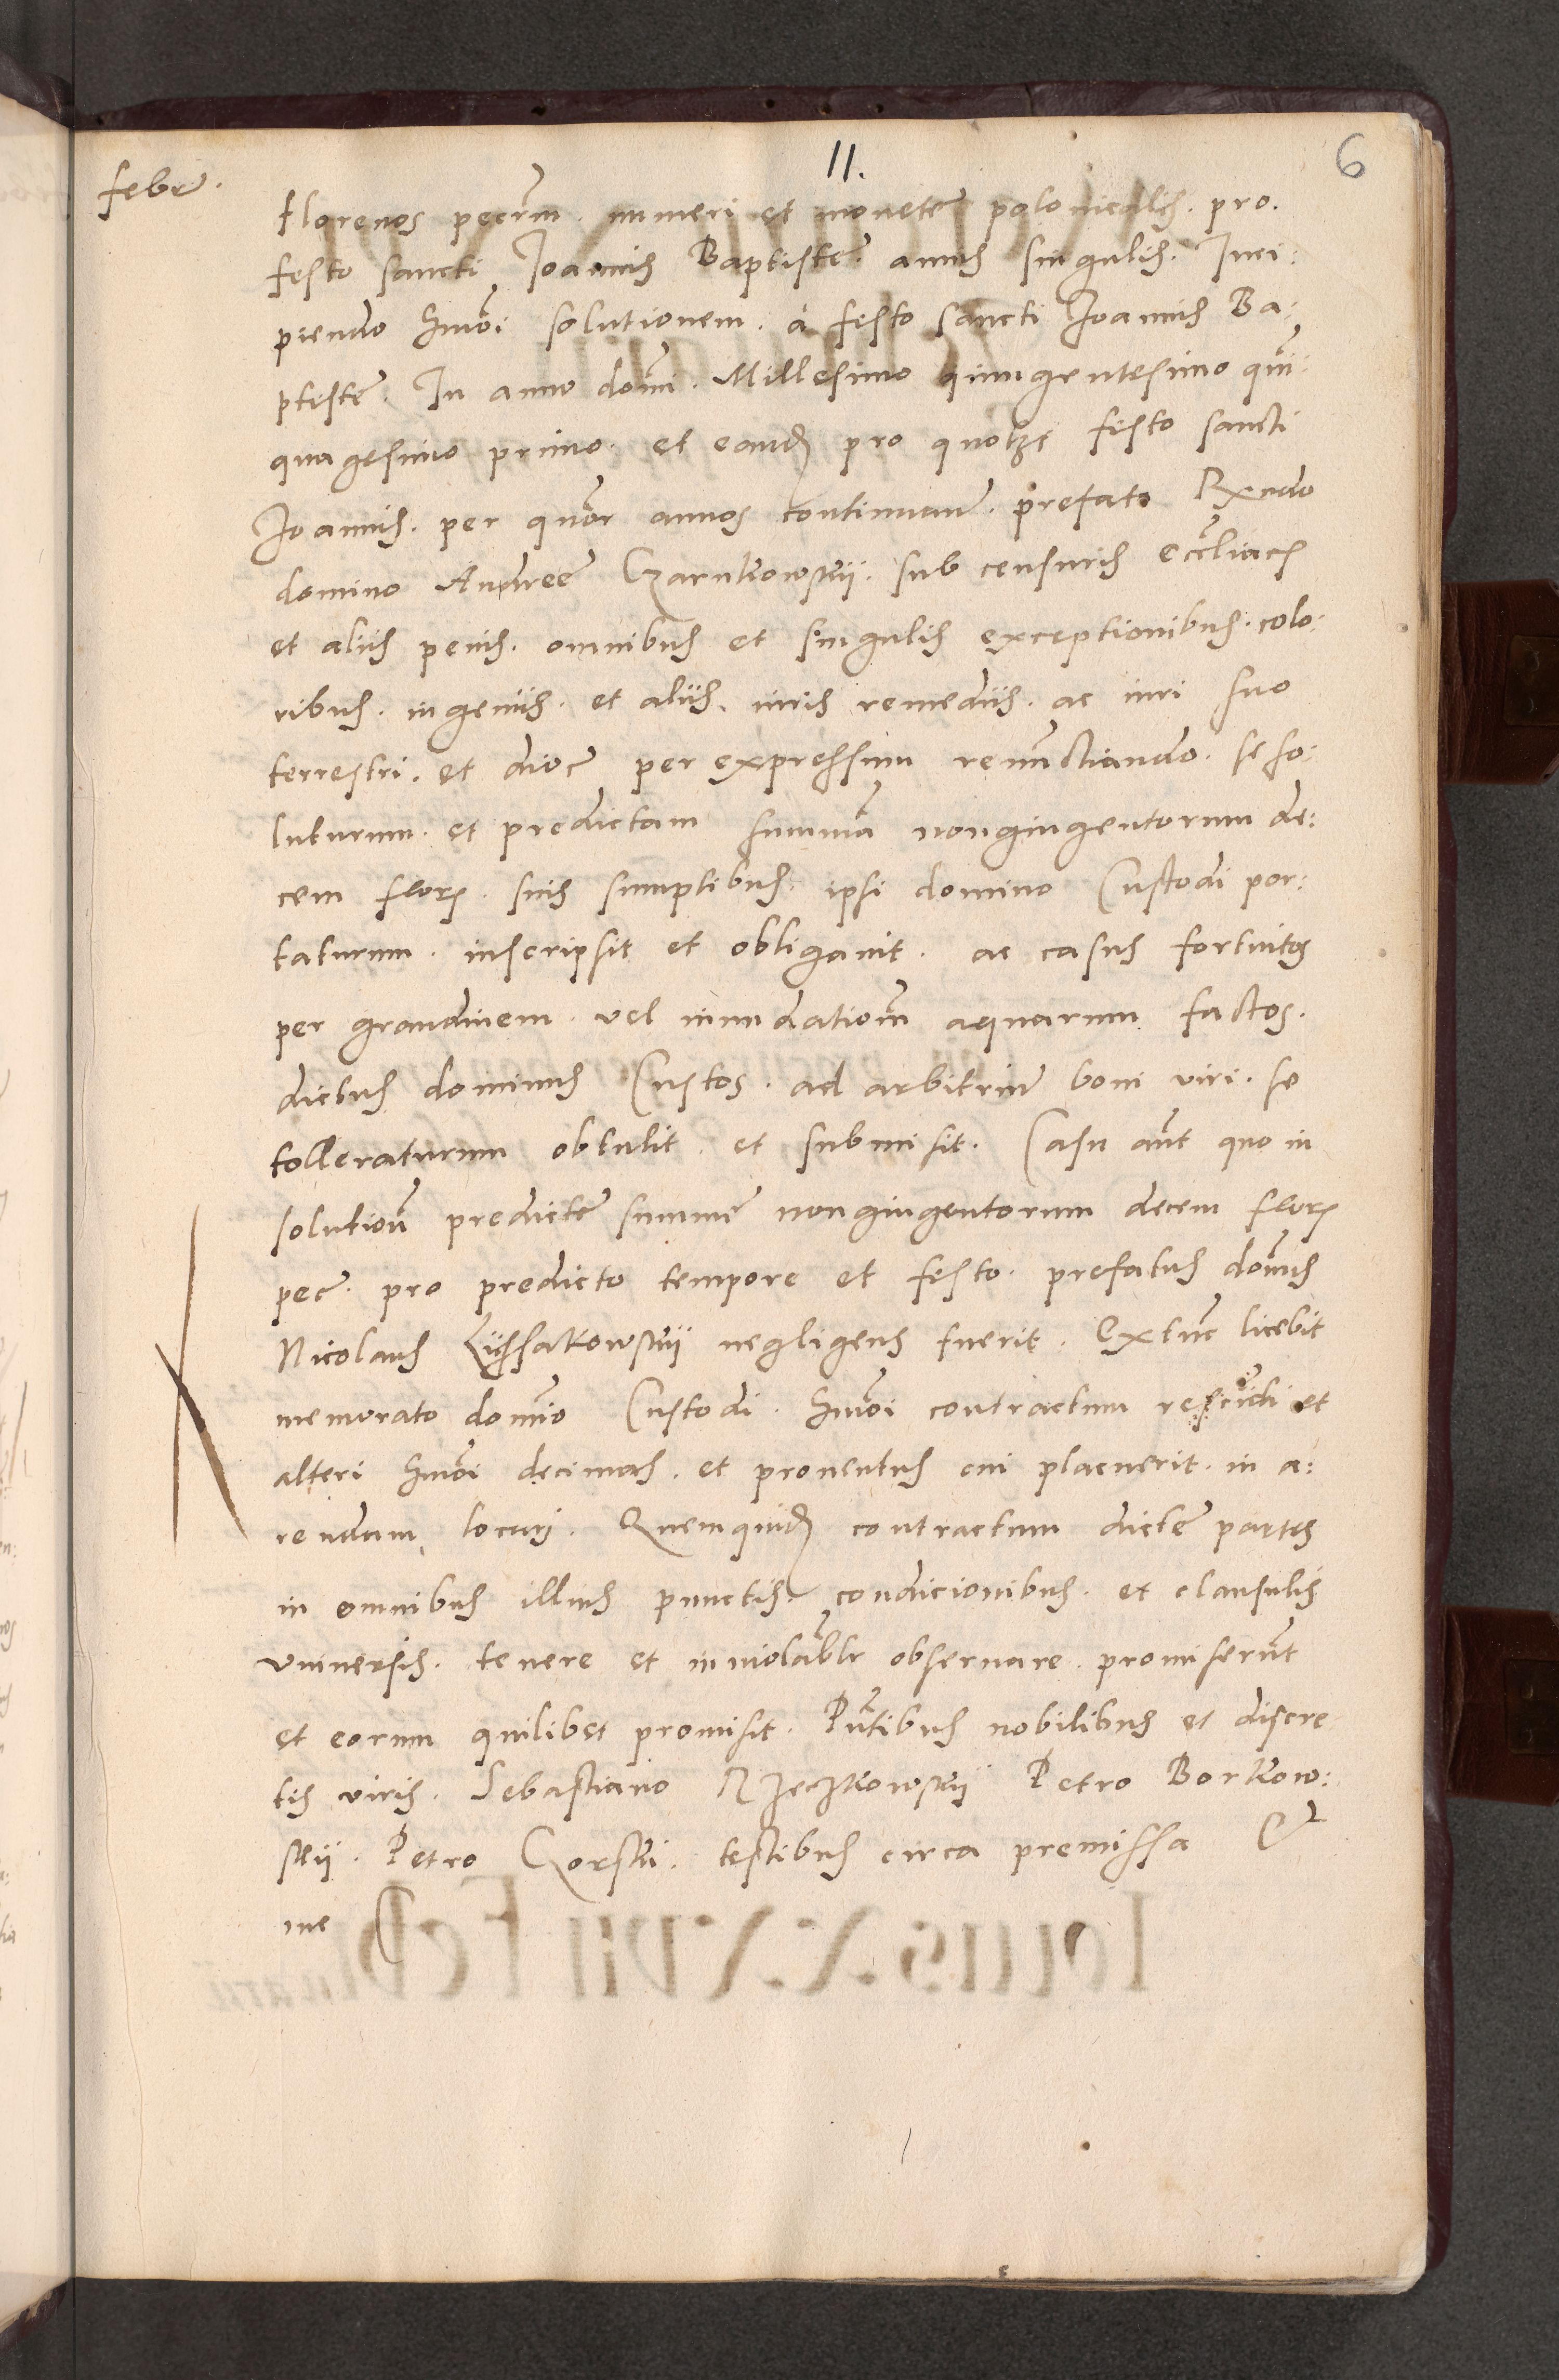 11.
6
febr.
florenos pecūm. numeri et monetę polonicalis. pro.
festo sancti Joannis Baptistę. annis singulis. Inci:
piendo hmōi solutionem. á festo sancti Joannis Ba:
ptistę. In anno domī. Millesimo quingentesimo quī:
quagesimo primo. et eand pro quolȝt festo sancti
Joannis. per quōr annos continuaē. prefato Rxndo
domino Andreę Czarnkowskij. sub censuris eccłiacȝ
et aliis penis. omnibus et singulis exceptionibus. colo:
ribus. ingeniis. et aliis. iuris remediis. ac iuri suo
terrestri. et dioc̄ per expressum renūctiando. se so:
luturum. et predictam summā nongingentorum de:
cem florȝ. suis sumptibus. ipsi domino Custodi por:
taturum. inscripsit et obligauit. ac casus fortuitos
per grandinem. vel inundatiom̄ aquarum factos.
dictus dominus Custos. ad arbitriū boni viri. se
tolleraturum obtulit. et submisit. Casu aūt quo in
solutioņ predictę summę nongingentorum decem florȝ
pec̄. pro predicto tempore et festo. prefatus domīus
Nicolaus Lijssakowskij negligens fuerit. Extūc licebit
memorato domīo Custodi. hmōi contractum rescidi et
alteri hmōi decimas. et prouentus cui placuerit. in a:
rendam locari. Quemquid contractum dictę partes
in omnibus illius punctis. condicionibus. et clausulis
vniuersis. tenere et inuiolabłr obseruare. promiserūt
et eorum quilibet promisit. Pntibus nobilibus et discre
tis viris. Sebastiano Rzeczkowskij Petro Borkow:
skij. Petro Gorski. testibus circa premissa Et
me